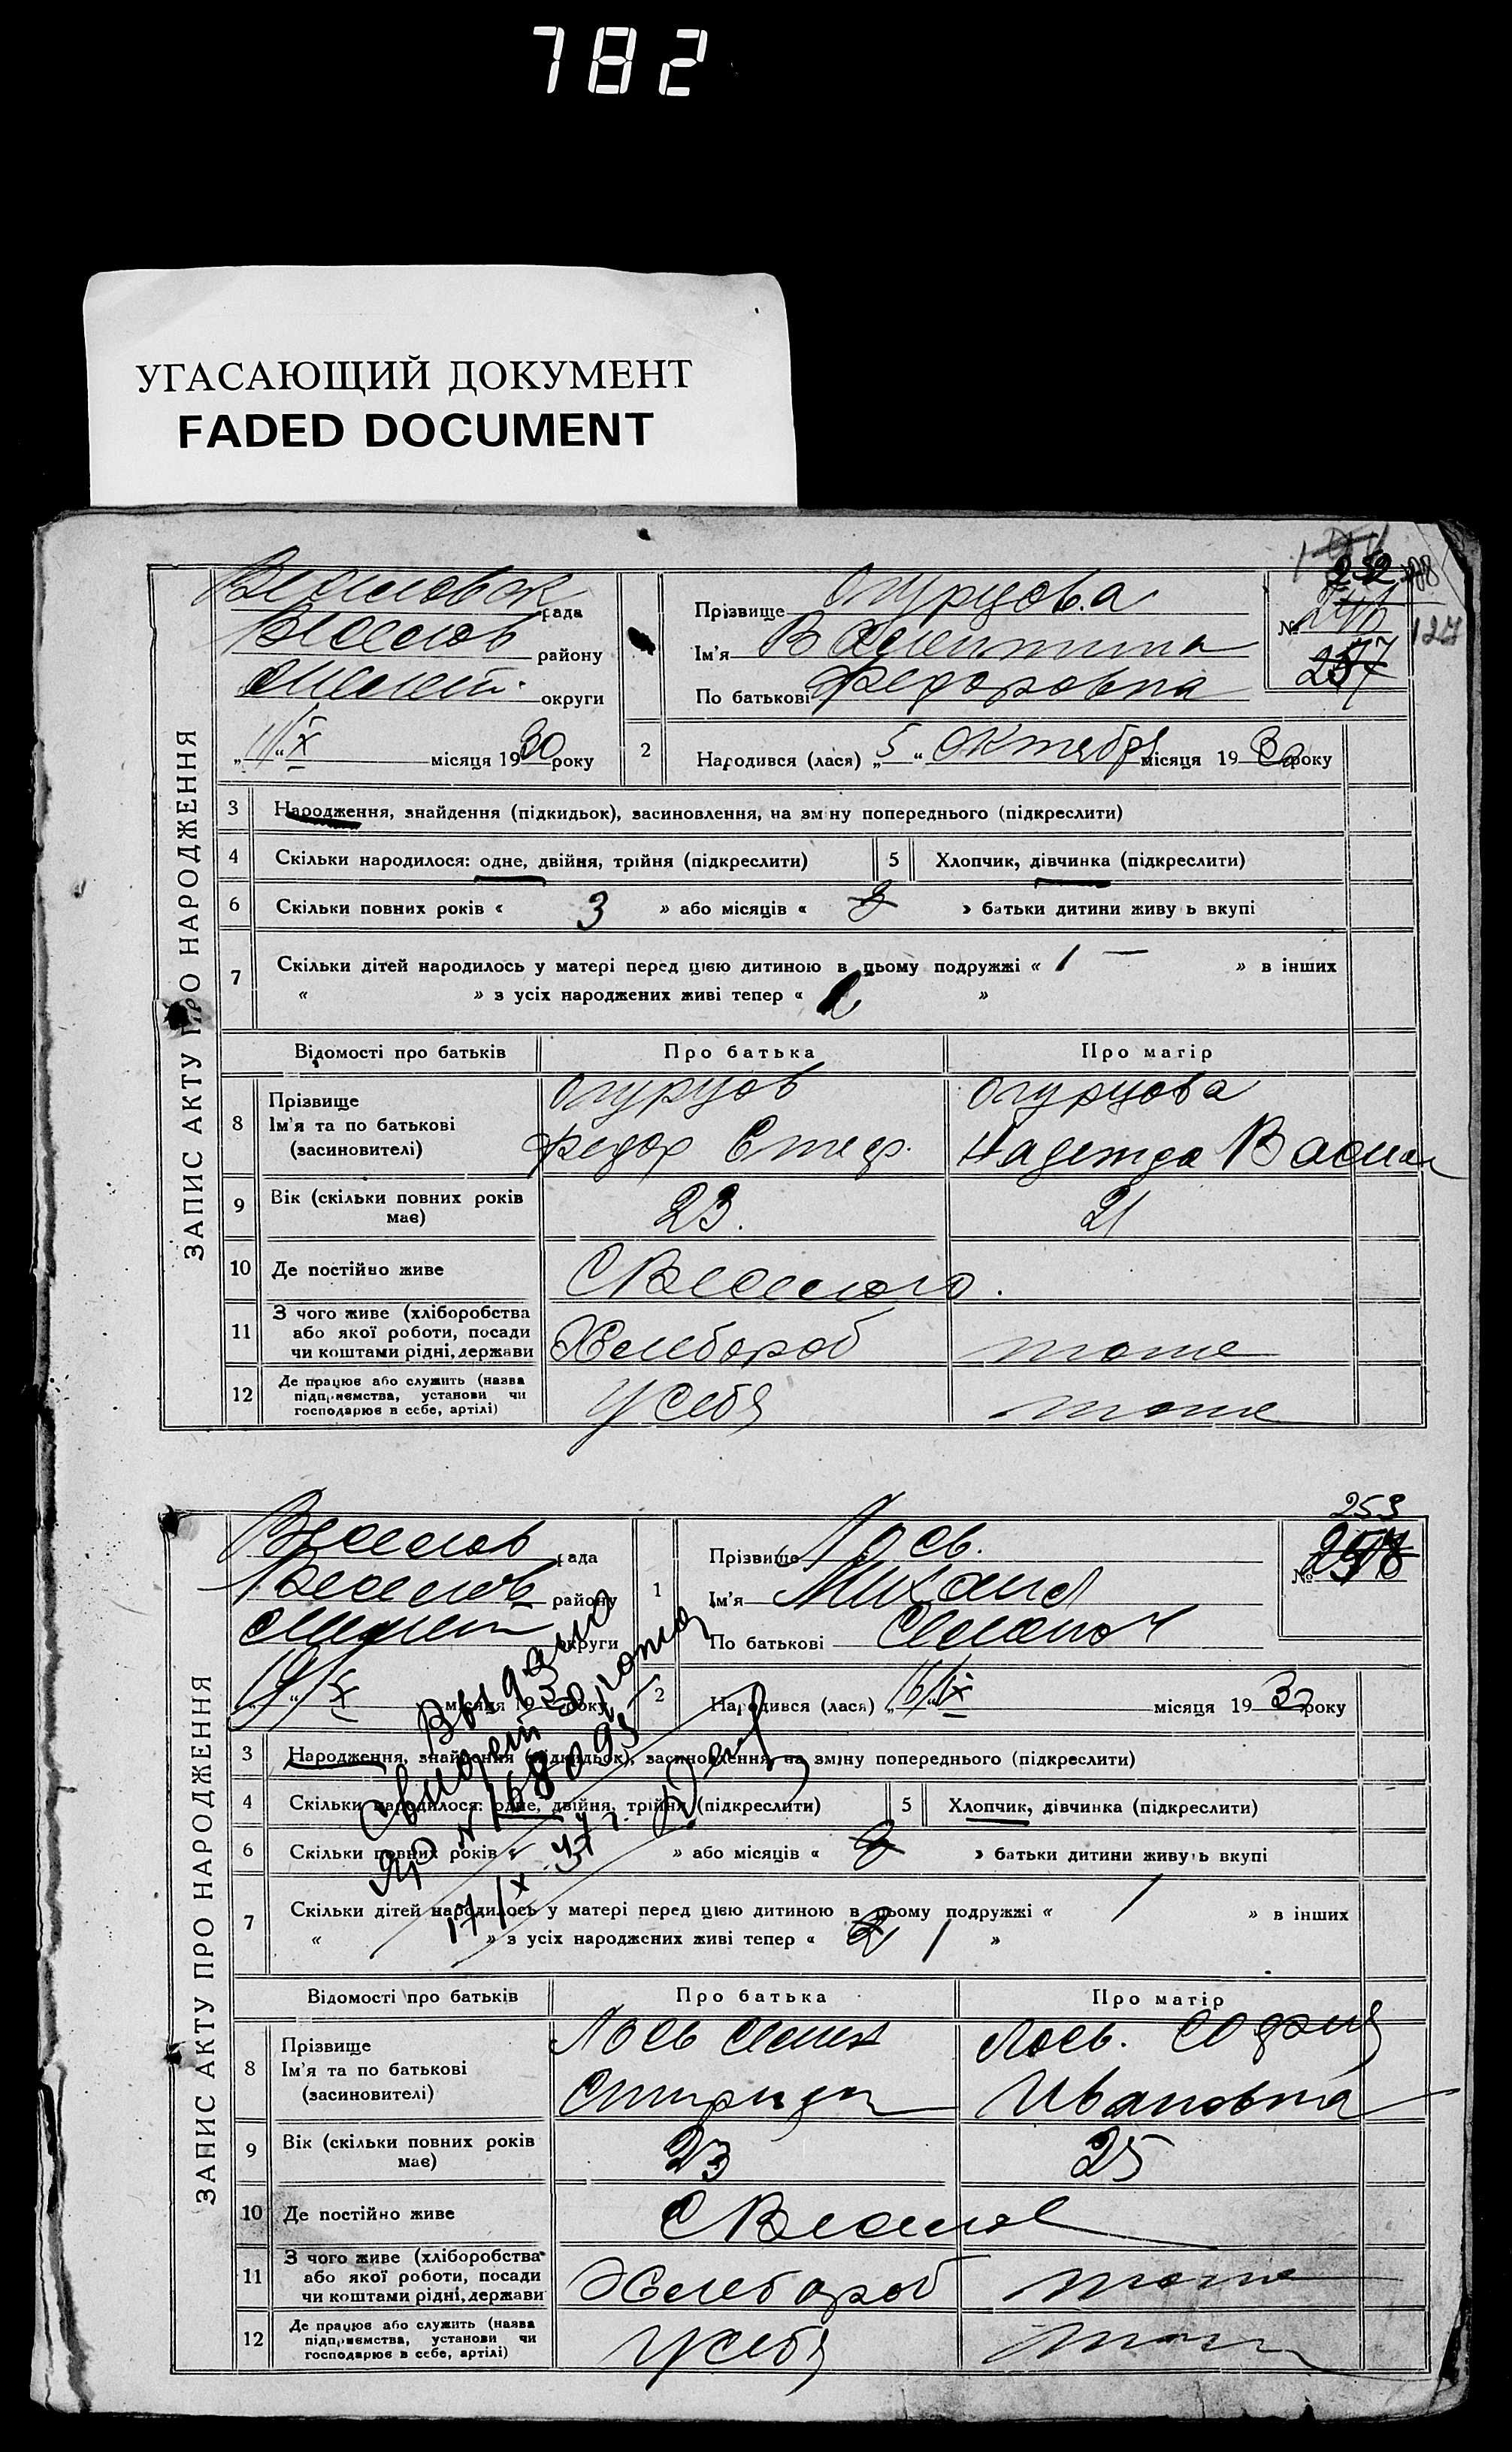 782
УГАСАЮЩИЙ ДОКУМЕНТ
FADED DOCUMENT
252
127
ЗАПИС АКТУ ПРО НАРОДЖЕННЯ
рада
Веселов району
Мелит. округи
"11" X місяця 1930 року
Прізвище Огурцова
Ім'я Валентина
По батькові Федоровна
№
257
2 Народився (лася) „5“ октября місяця 1930 року
3 Народження, знайдення (підкидьок), засиновлення, на зміну попереднього (підкреслити)
4 Скільки народилося: одне, двійня, трійня (підкреслити)
5 Хлопчик, дівчинка (підкреслити)
6 Скільки повних років « 3 » або місяців « » батьки дитини живу ь вкупі
7 Скільки дітей народилось у матері перед цією дитиною в цьому подружжі « 1 — » в інших
« » з усіх народжених живі тепер « »
Відомості про батьків Про батька Про матір
8 Прізвище Огурцов Огурцова
Ім'я та по батькові
(засиновителі) Федор Стеф. Надежда Васил
9 Вік (скільки повних років має) 23. 21
10 Де постійно живе С Веселого.
11 З чого живе (хліборобства
або якої роботи, посади
чи коштами рідні, держави Хлебороб тоже
12 Де працює або служить (назва
підприємства, установи чи
господарює в себе, артілі) У себя тоже
253
ЗАПИС АКТУ ПРО НАРОДЖЕННЯ
Веселов рада
Веселов району
Мелит округи
X місяця 1930 року
1 Прізвище Лось.
Ім'я Михаил
По батькові
№
2 Народився (лася) місяця 1930 року
3 Народження, знайдення (підкидьок), засиновлення, на зміну попереднього (підкреслити)
4 Скільки народилося: одне, двійня, трійня (підкреслити)
5 Хлопчик, дівчинка (підкреслити)
6 Скільки повних років « » або місяців « » батьки дитини живуть вкупі
7 Скільки дітей народилось у матері перед цією дитиною в цьому подружжі « 1 » в інших
« » з усіх народжених живі тепер « 1 »
Выдано
свидет
№ 168095
17/X
Відомості про батьків Про батька Про матір
8 Прізвище Лось Семен Лось. София
Ім'я та по батькові
(засиновителі) Ивановна
9 Вік (скільки повних років має) 23 25
10 Де постійно живе С Веселое
11 З чого живе (хліборобства
або якої роботи, посади
чи коштами рідні, держави Хлебороб тоже
12 Де працює або служить (назва
підприємства, установи чи
господарює в себе, артілі) У себя тоже